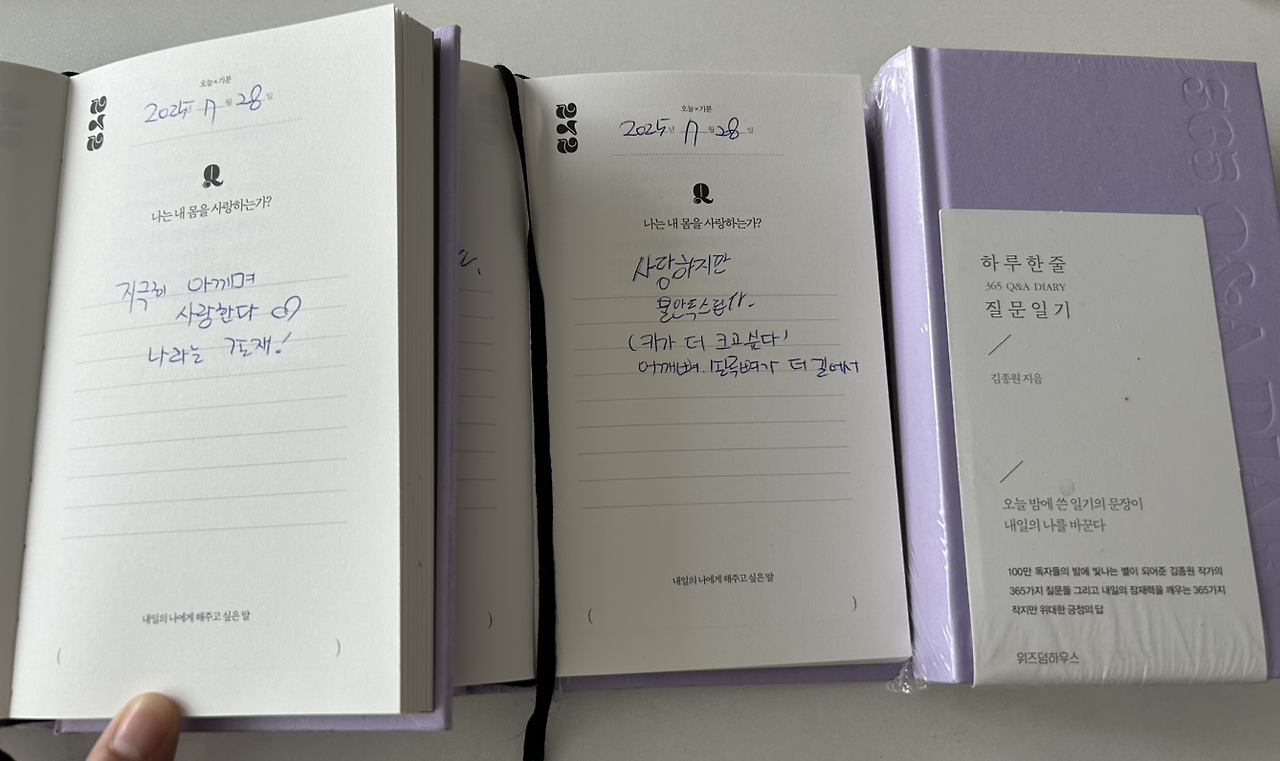 오늘×기분
2025년 7월 28일
Q
나는 내 몸을 사랑하는가?
지극히 아끼며
사랑한다
나라는 존재!
내일의 나에게 해주고 싶은 말
(
)
)
오늘×기분
2025년 7월 28일
Q
나는 내 몸을 사랑하는가?
사랑하지만
불만족스럽다.
(키가 더 크고싶다)
어깨뼈. 팔목뼈가 더 길어서
내일의 나에게 해주고 싶은 말
(
)
365 Q&A DIA
하루한줄
365 Q&A DIARY
질문일기
김종원 지음
오늘 밤에 쓴 일기의 문장이
내일의 나를 바꾼다
100만 독자들의 밤에 빛나는 별이 되어준 김종원 작가의
365가지 질문들 그리고 내일의 잠재력을 깨우는 365가지
작지만 위대한 긍정의 답
위즈덤하우스